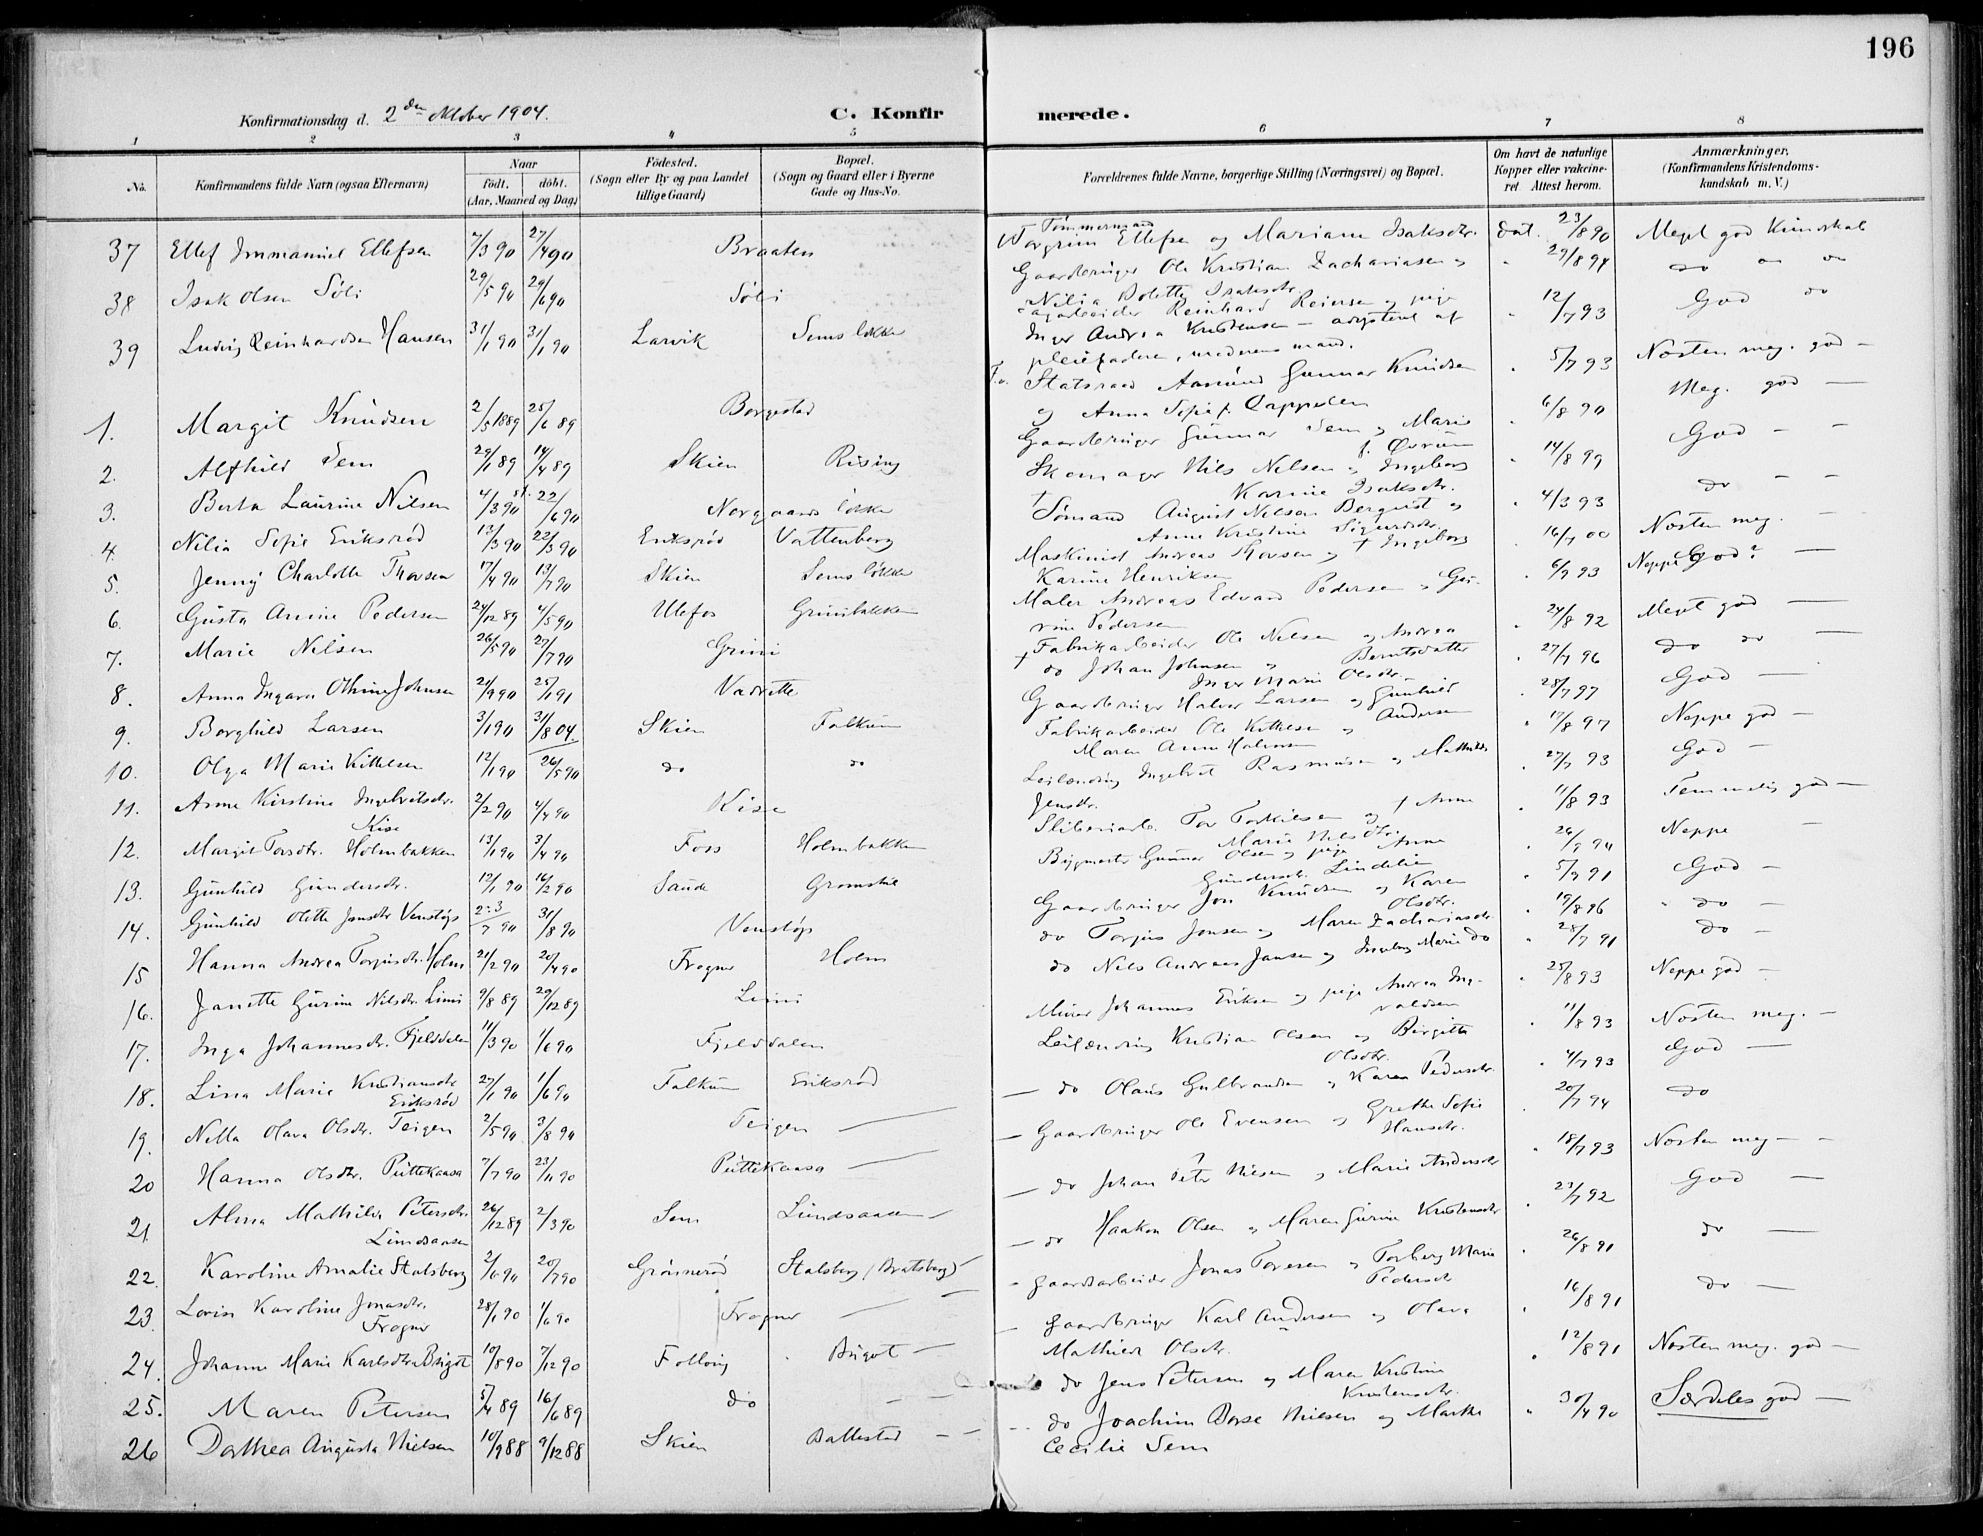 196
Konfirmationsdag d. 2den Oktober 1904.
C. Konfirmerede.
1 2 3 4 5 6 7 8
No.
Konfirmandens fulde Navn (ogsaa Efternavn)
Naar
født. døbt.
(Aar, Maaned og Dag)
Fødested.
(Sogn eller By og paa Landet
tillige Gaard)
Bopæl.
(Sogn og Gaard eller i Byerne
Gade og Hus-No.
Forældrenes fulde Navne, borgerlige Stilling (Næringsvei) og Bopæl.
Om havt de naturlige
Kopper eller vakcine-
ret. Attest herom.
Anmærkninger.
(Konfirmandens Kristendoms-
kundskab m. V.)
37 Ellef Immanuel Ellefsen 7/3 90 27/4 90 Braaten Tømmermand Torgrim Ellefsen og Mariane Isaksdtr. Dat. 23/8 90 Meget god Kundskab
38 Isak Olsen Søli 29/5 90 29/6 90 Søli Gaardbruger Ole Kristian Zachariasen og Nilia Bolette Isaksdtr. " 29/8 94 do
39 Ludvig Reinhardsen Hansen 31/1 90 31/1 90 Larvik Sems løkke Reinhard Reiersen og pige Inger Andrea Kristensen – adopteret af pleiefaderen, moderens mand. " 12/7 93 God do
1. Margit Knudsen 2/5 1889 25/6 89 Borgestad Statsraad Aamund Gunnar Knudsen og Anna Sofie f. Cappelen " 5/7 93 Næsten meg. god –
2. Alfhild Sem 29/1 89 14/4 89 Skien Rising Gaardbruger Gunnar Sem og Marie f. Øvrum " 6/8 90 Meg. god –
3. Berta Laurine Nilsen 4/3 90 22/6 90 Norgaards løkke Skomager Nils Nelsen og Ingeborg Karine Isaksdtr. " 14/8 99 God – –
4. Nilia Sofie Eriksrød 13/3 90 22/3 90 Eriksrød Vattenberg † Sømand August Nelson Berquist og Anne Kristine Sigurdsdtr. " 4/3 93 do – –
5. Jenny Charlotte Thovsen 17/4 90 13/7 90 Skien Sems løkke Maskinist Andreas Thovsen og † Ingeborg Karine Henriksen " 16/7 00 Næsten meg. –
6. Gusta Anine Pedersen 24/12 89 4/5 90 Ulefos Grinibakken Maler Andreas Edvard Pedersen og Gurine Pedersen " 6/9 93 Neppe God? –
7. Marie Nilsen 26/5 90 27/7 90 Grini † Fabrikarbeider Ole Nelsen og Andrea Berntsdatter " 24/8 92 Meget god –
8. Anna Ingara Othine Johnsen 21/9 90 25/1 91 Vadrette do Johan Johnsen og Inger Marie Olsdtr. – " 27/7 96 do do –
9. Borghild Larsen 3/1 90 31/8 04. Skien Falkum Gaardbruger Halvor Larsen og Gunhild Andersen " 28/7 97 God –
10. Olga Marie Kittelsen 12/1 90 26/5 90 do do Fabrikarbeider Ole Kittelsen og Maren Anne Halvorsen " 17/8 97 Neppe god –
11. Anne Kirstine Ingebretsdtr. Kise 2/2 90 4/4 90 Kise Leilænding Ingebret Rasmusen og Mathilde Jensdtr. " 27/7 93 God –
12. Margit Torsdtr. Holmbakken 13/1 90 3/4 90 Foss Holmbakken Sliberiarb. Tor Torkilsen og † Anne Marie Nilsdtr. " 11/8 93 Temmelig god –
13. Gunhild Gundersdtr. 12/1 90 16/2 90 Saude Gromstul Bygmester Gunnar Olsen og pige Anne Gundersdtr. Lindelie " 26/9 90 Neppe –
14. Gunhild Olette Jonsdtr Venstøp 23/7 90 31/8 90 Venstøp Gaardbruger Jon Knudsen og Karen Olsdtr. " 5/9 91 God –
15 Hanna Andrea Torjusdtr. Holm 21/2 90 20/4 90 Frogner Holm do Torjus Jonsen og Maren Zachariasdtr " 19/8 96 " do –
16. Janette Gurine Nilsdtr. Limi 9/8 89 29/12 89 Limi do Nils Andreas Jansen og Ingeborg Marie do " 28/7 91 do –
17. Inga Johannesdtr. Fjelddalen 11/3 90 1/6 90 Fjelddalen Murer Johannes Eriksen og pige Andrea Ingvaldsen " 25/8 93 Neppe god –
18. Lina Marie Kristiansdtr Eriksrød 27/1 90 1/6 90 Falkum Eriksrød Leilænding Kristian Olsen og Birgitte Olsdtr. " 11/8 93 Næsten meg. –
19. Nella Olava Olsdtr. Teigen 2/5 90 3/8 90 Teigen – – do Olaus Gulbrandsen og Karen Pedersdtr. " 4/7 93 God –
20 Hanna Olsdtr. Puttekaasa 7/7 90 23/11 90 Puttekaasa – – Gaardbruger Ole Evensen og Grethe Sofie Hansdtr. " 20/7 94 do
21. Alma Mathilda Petersdtr. Lundsaasen 26/12 89 2/3 90 Sem Lundsaasen – – do Johan Peter Nielsen og Marie Andersdtr " 18/7 93 Næsten meg – –
22. Karoline Amalie Stalsberg 2/6 90 20/7 90 Grøsnerød Stalsberg (Bratsberg) – – do Haakon Olsen og Maren Gurine Kristensdtr " 23/7 92 God –
23. Lovise Karoline Jonasdtr. Frogner 28/1 90 1/6 90 Frogner – – Gaardsarbeider Jonas Toresen og Torberg Marie Pedersdtr " 26/8 91 do –
24. Johanne Marie Karlsdtr Bugot 10/8 90 7/12 90 Follaug Bugot – – Gaardbruger Karl Andersen og Olava Mathilde Olsdtr. " 16/8 91 do –
25. Maren Petersen 5/4 89 16/6 89 do – – do Jens Petersen og Maren Kristine Kristensdtr. " 12/8 91 Næsten meg. god –
26 Dorthea Augusta Nielsen 10/9 88 9/12 88 Skien Ballestad – – do Joachim Borse Nielsen og Marthe Cecilie Sem " 30/4 90 Særdeles god –